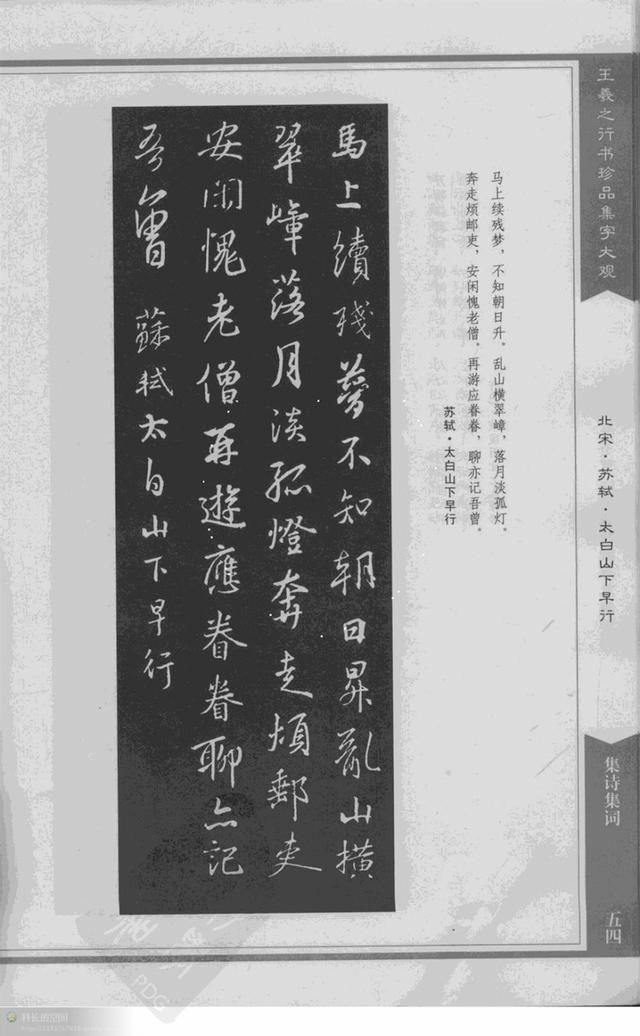 王羲之行书珍品集字大观
北宋·苏轼·太白山下早行
集诗集词
五四
马上续残梦，不知朝日升。乱山横翠嶂，落月淡孤灯。
奔走烦邮吏，安闲愧老僧。再游应眷眷，聊亦记吾曾。
苏轼·太白山下早行
馬上續殘夢不知朝日昇亂山橫
翠嶂落月淡孤燈奔走煩郵吏
安閑愧老僧再遊應眷眷聊亦記
吾曾
蘇軾太白山下早行
PDG
科长的空间